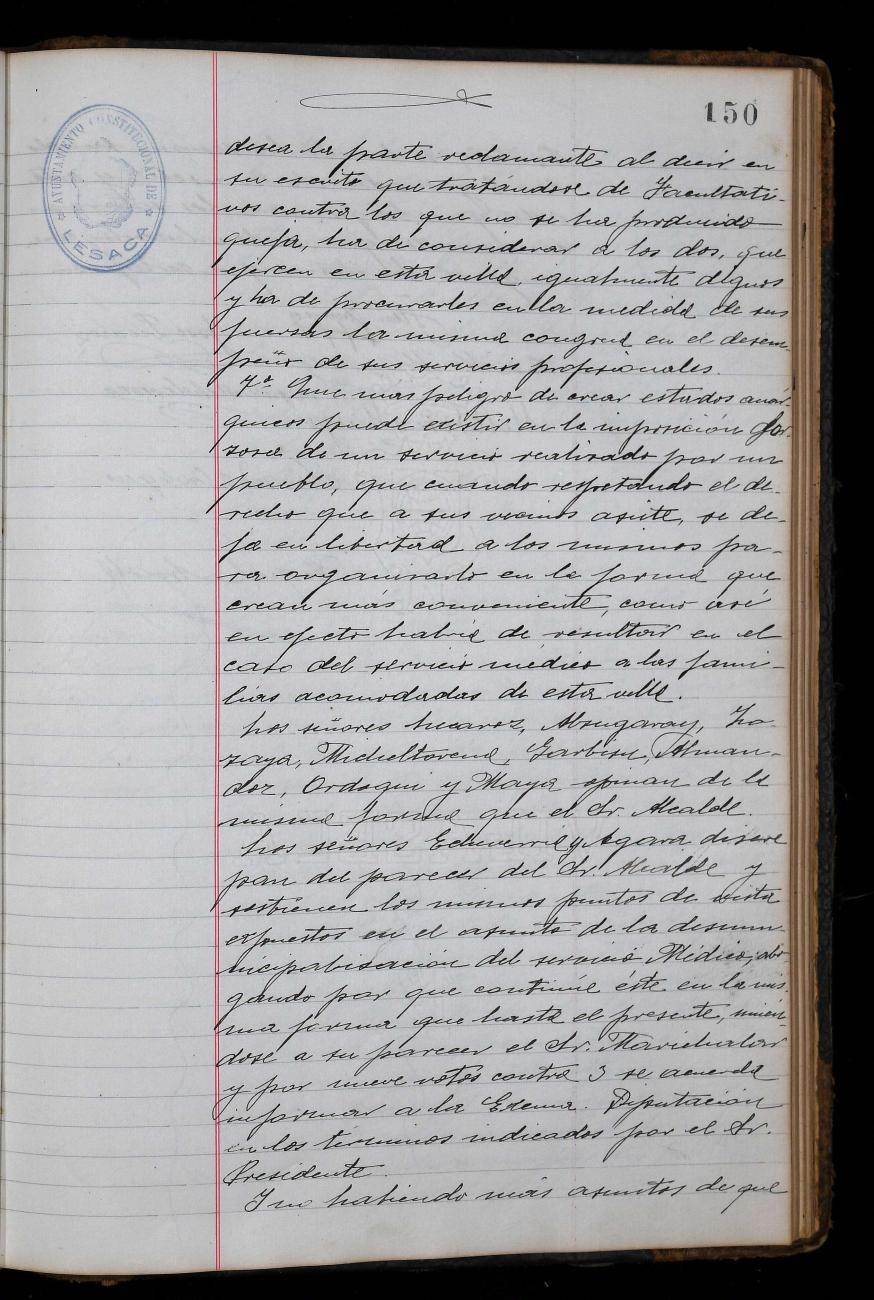 150
AYUNTAMIENTO CONSTITUCIONAL DE
LESACA
desea la parte reclamante al decir en
su escrito que tratándose de Facultati-
vos contra los que no se ha producido
queja, ha de considerar a los dos, que
ejercen en esta villa, igualmente dignos
y ha de procurarles en la medida de sus
fuersas la misma congrua en el desem-
peño de sus servicios profesionales.
7º Que mas peligro de crear estados anár-
quicos puede existir en la imposición for-
zosa de un servicio realizado por un
pueblo, que cuando respetando el de-
recho que a sus vecinos asiste, se de-
ja en libertad a los mismos pa-
ra organizarlo en la forma que
crean más conveniente, como así
en efecto habria de resultar en el
caso del servicio médico a las fami-
lias acomodadas de esta villa.
Los señores Abzugaray, Zo-
zaya, Micheltorena, Garbisu, Alman-
doz, Ordoqui y Maya opinan de la
misma forma que el Sr. Alcalde.
Los señores Echeverria y Agara discre
pan del parecer del Sr. Alcalde y
sostienen los mismos puntos de vista
expuestos en el asunto de la desmu-
nicipalisación del servicio Médico, abo-
gando por que continúe éste en la mis-
ma forma que hasta el presente, unién-
dose a su parecer el Sr. Marichalar
y por nueve votos contra 3 se acuerda
informar a la Excma. Diputación
en los términos indicados por el Sr.
Presidente.
Y no habiendo más asuntos de que